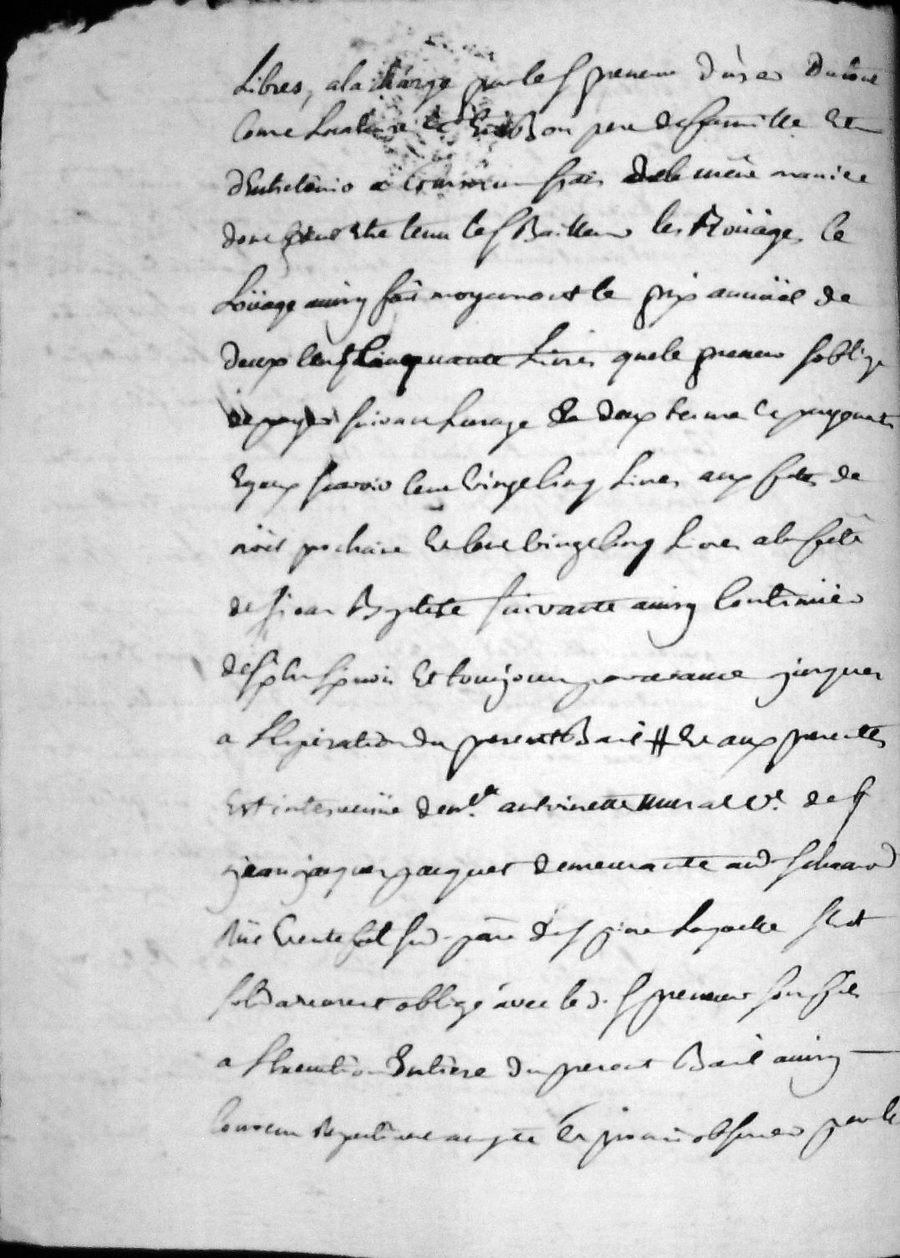 Libres, a la charge par le S preneur d'user du loué
Come Locataire Et En Bon pere de famille Et
d'Entretenir a frais de la même maniere
dont peut Etre tenu le S Bailleur les Roüages, le
Loüage ainsy fait moyenant le prix annüel de
deux Cens Cinquante Livres que le preneur s'oblige
de payer suivant L'usage En deux termes Et payements
Egaux scavoir Cent Vingt Cinq Livres aux fetes de
nöel prochaine Et Cent Vingt Cinq Livres a la fete
de St jean Baptiste suivante ainsy Continüer
de six En six mois Et toujours par avance jusques
a L'Expiration du present Bail # Et aux presentes
Est intervenüe dem.lle antoinette Ve. de S
jean jaques jaquet demeurante aud
Rüe par de S piere s'Est
solidairement obligé avec led. S preneur son fils
a L'Execution Entiere du present Bail ainsy
accepté Et promis observer par le